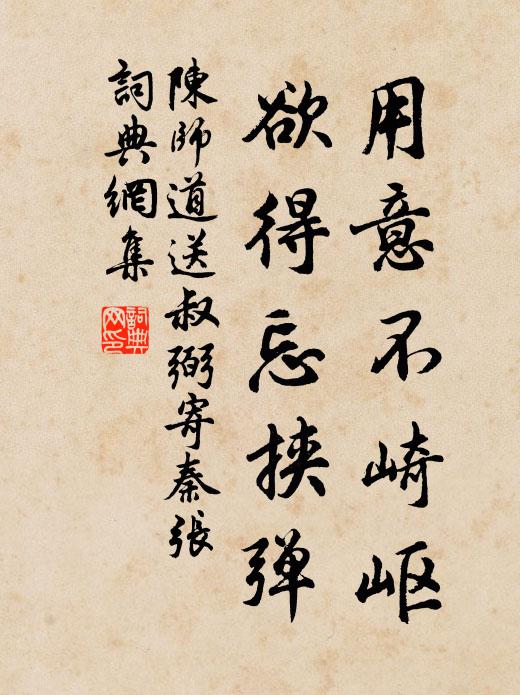 用意不崎岖
欲得忘挟弹
陳師道送叔弼寄秦張
詞典網集
詞典网印